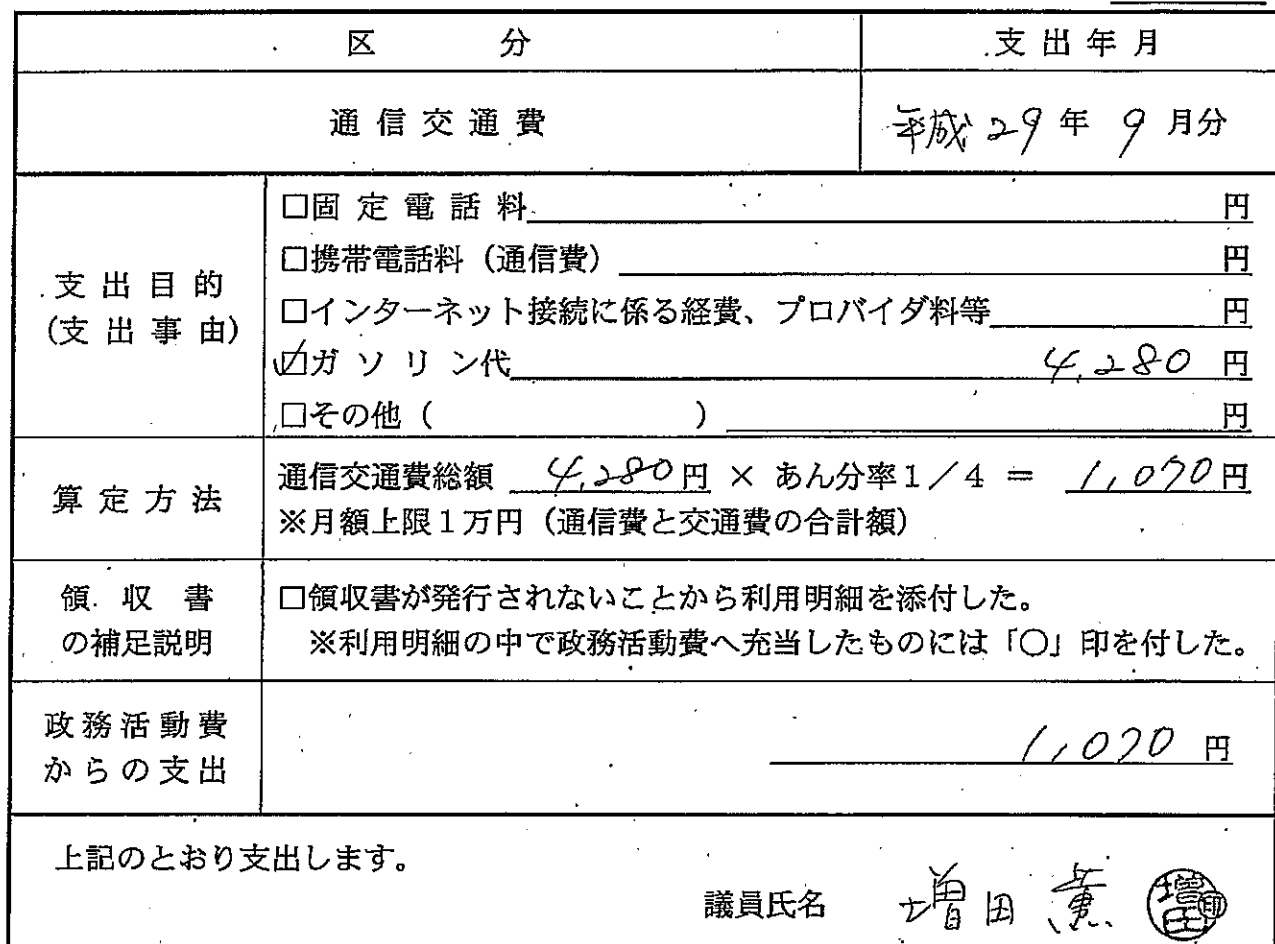 区分 支出年月
通信交通費 平成29年9月分
支出目的
(支出事由)
□固定電話料 円
□携帯電話料（通信費） 円
□インターネット接続に係る経費、プロバイダ料等 円
☑ガソリン代 4,280円
□その他（ ） 円
算定方法
通信交通費総額 4,280円 × あん分率1／4 = 1,070円
※月額上限1万円（通信費と交通費の合計額）
領収書
の補足説明
□領収書が発行されないことから利用明細を添付した。
※利用明細の中で政務活動費へ充当したものには「○」印を付した。
政務活動費
からの支出
1,070円
上記のとおり支出します。
議員氏名 増田薫 増田 印